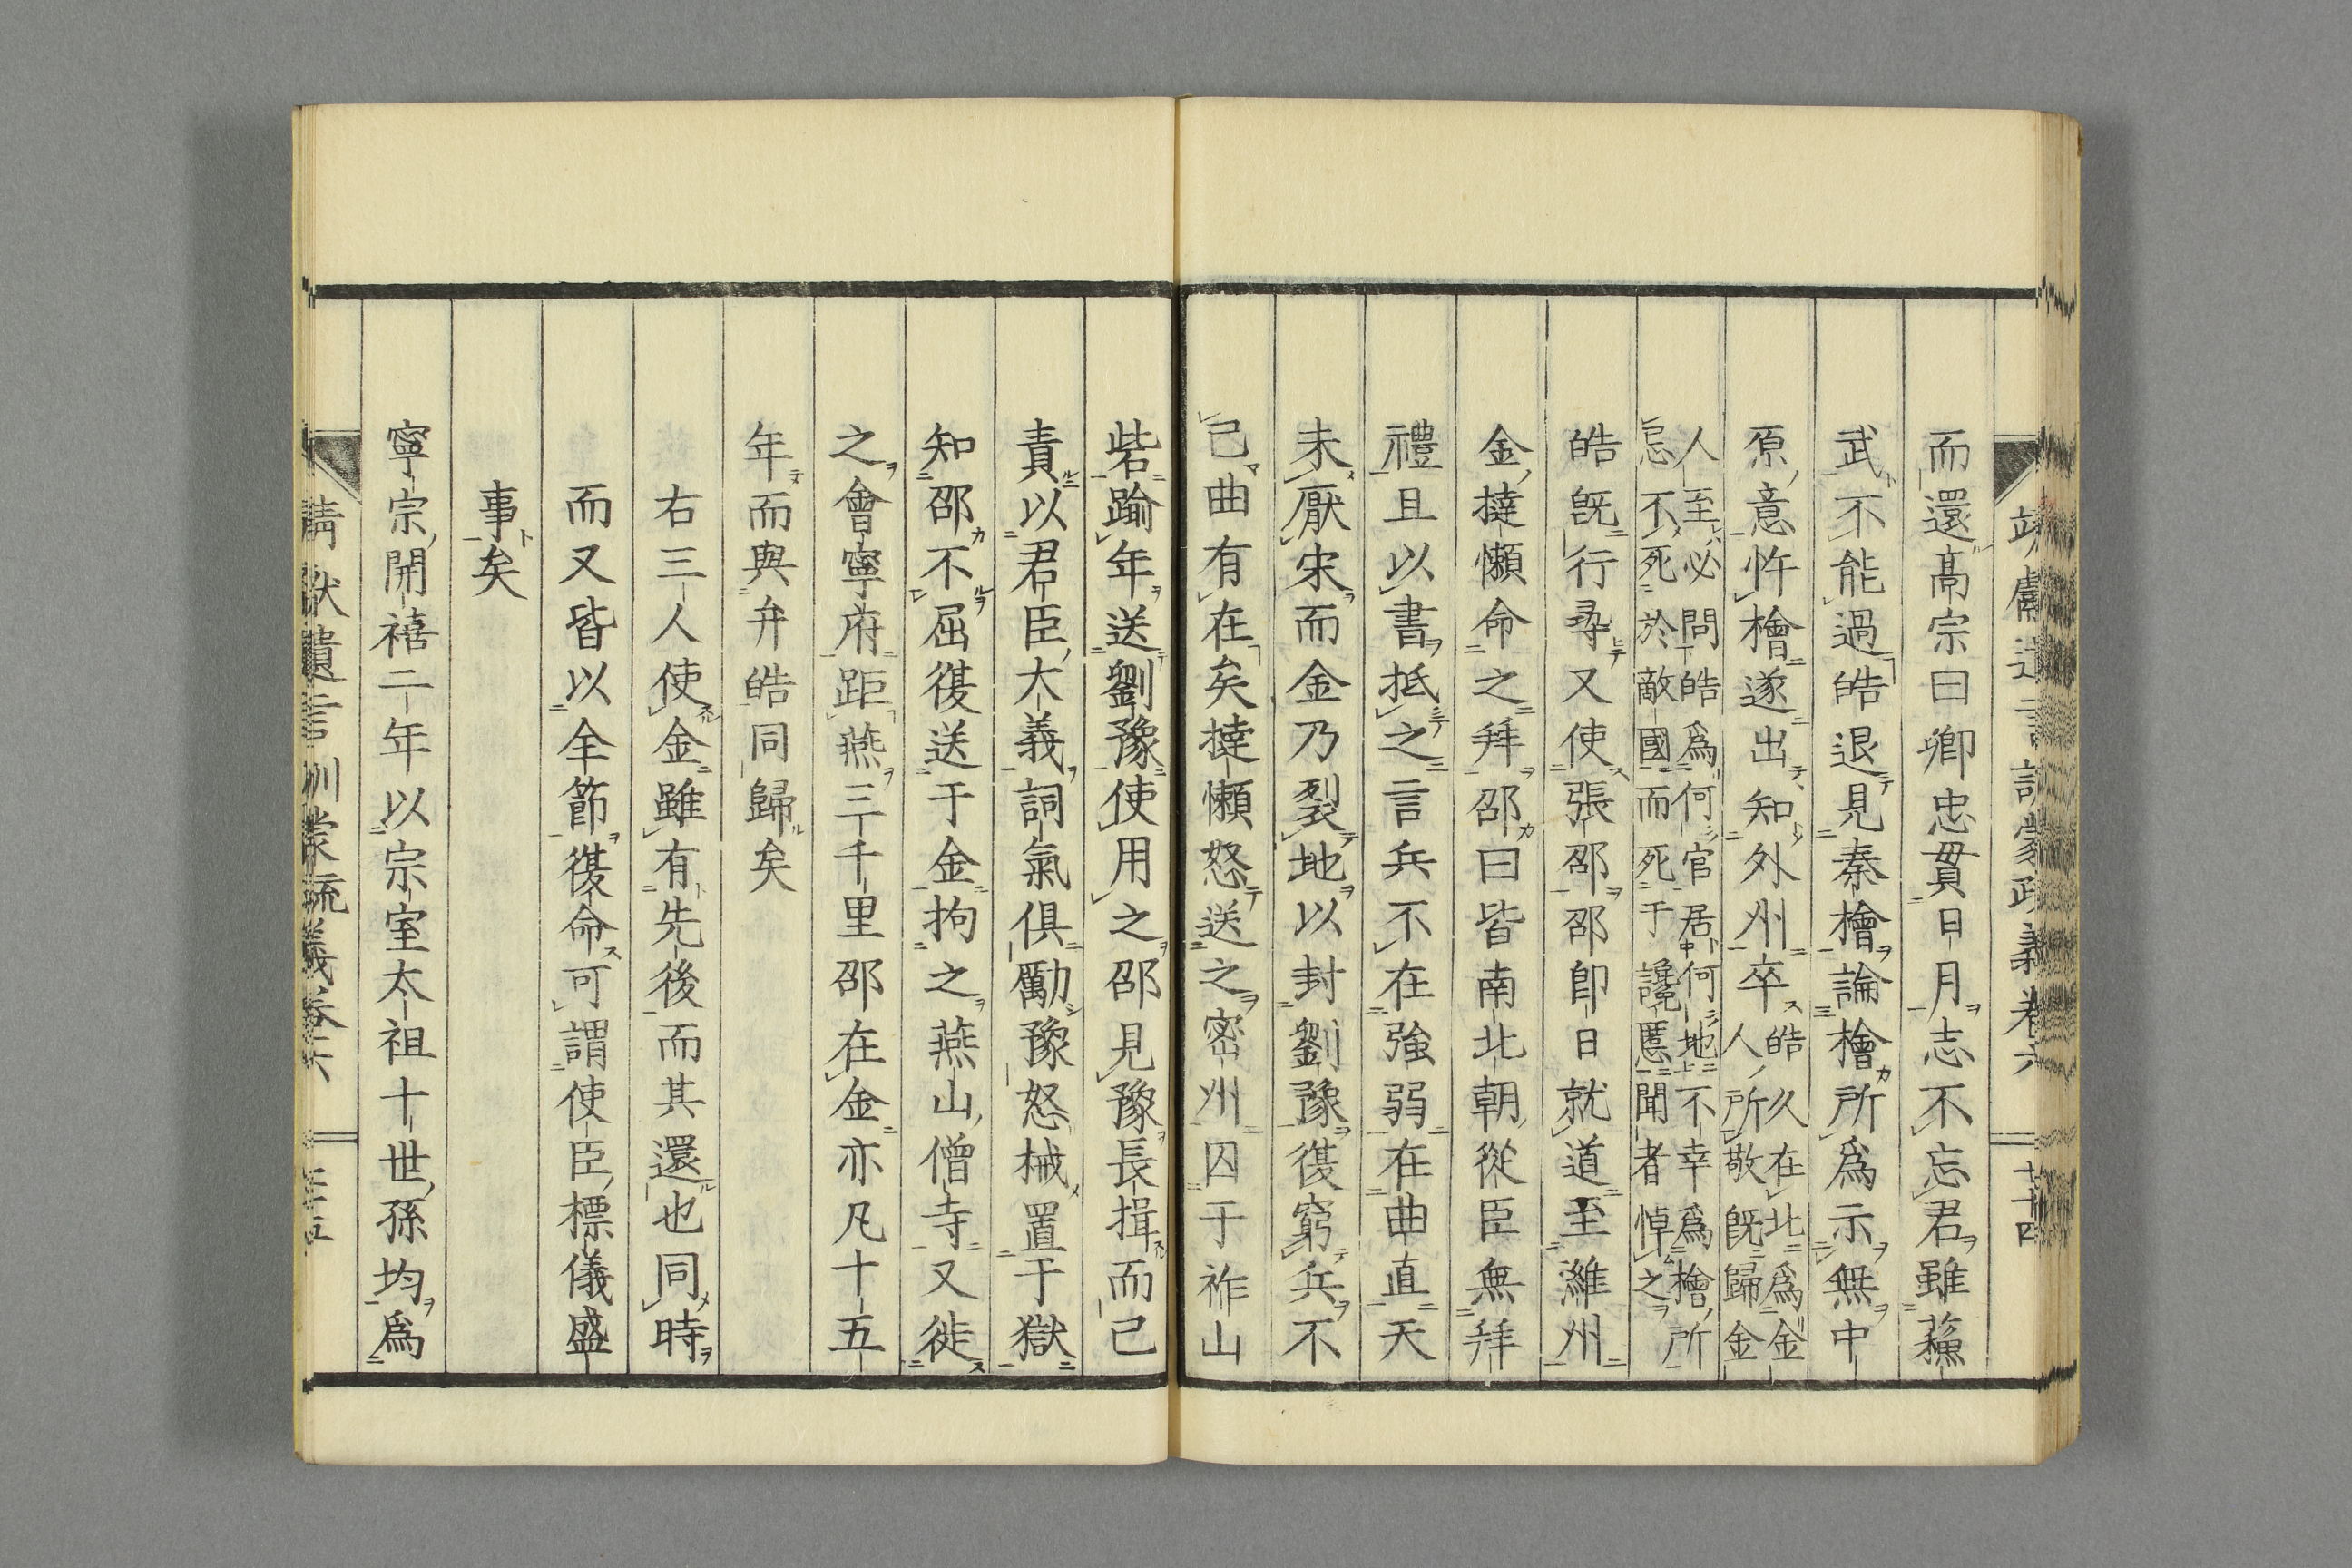 而還高宗曰卿忠貫日月志不忘君雖蘓
武不能過皓退見秦檜論檜所爲示無中
原意忤檜遂出知外州卒
皓久在北爲金
人所敬旣歸金
人至必問皓爲何官居何地不幸爲檜所
忌不死於敵國而死于讒慝聞者悼之
皓旣行尋又使張邵邵卽日就道至濰州
金撻懶命之拜邵曰皆南北朝從臣無拜
禮且以書抵之言兵不在強弱在曲直天
未厭宋而金乃裂地以封劉豫復窮兵不
已曲有在矣撻懶怒送之密州囚于祚山
砦踰年送劉豫使用之邵見豫長揖而已
責以君臣大義詞氣俱勵豫怒械置于獄
知邵不屈復送于金拘之燕山僧寺又徙
之會寧府距燕三千里邵在金亦凡十五
年而與弁皓同歸矣
右三人使金雖有先後而其還也同時
而又皆以全節復命可謂使臣標儀盛
事矣
寧宗開禧二年以宗室太祖十世孫均爲
靖獻遺言訓蒙疏義卷六